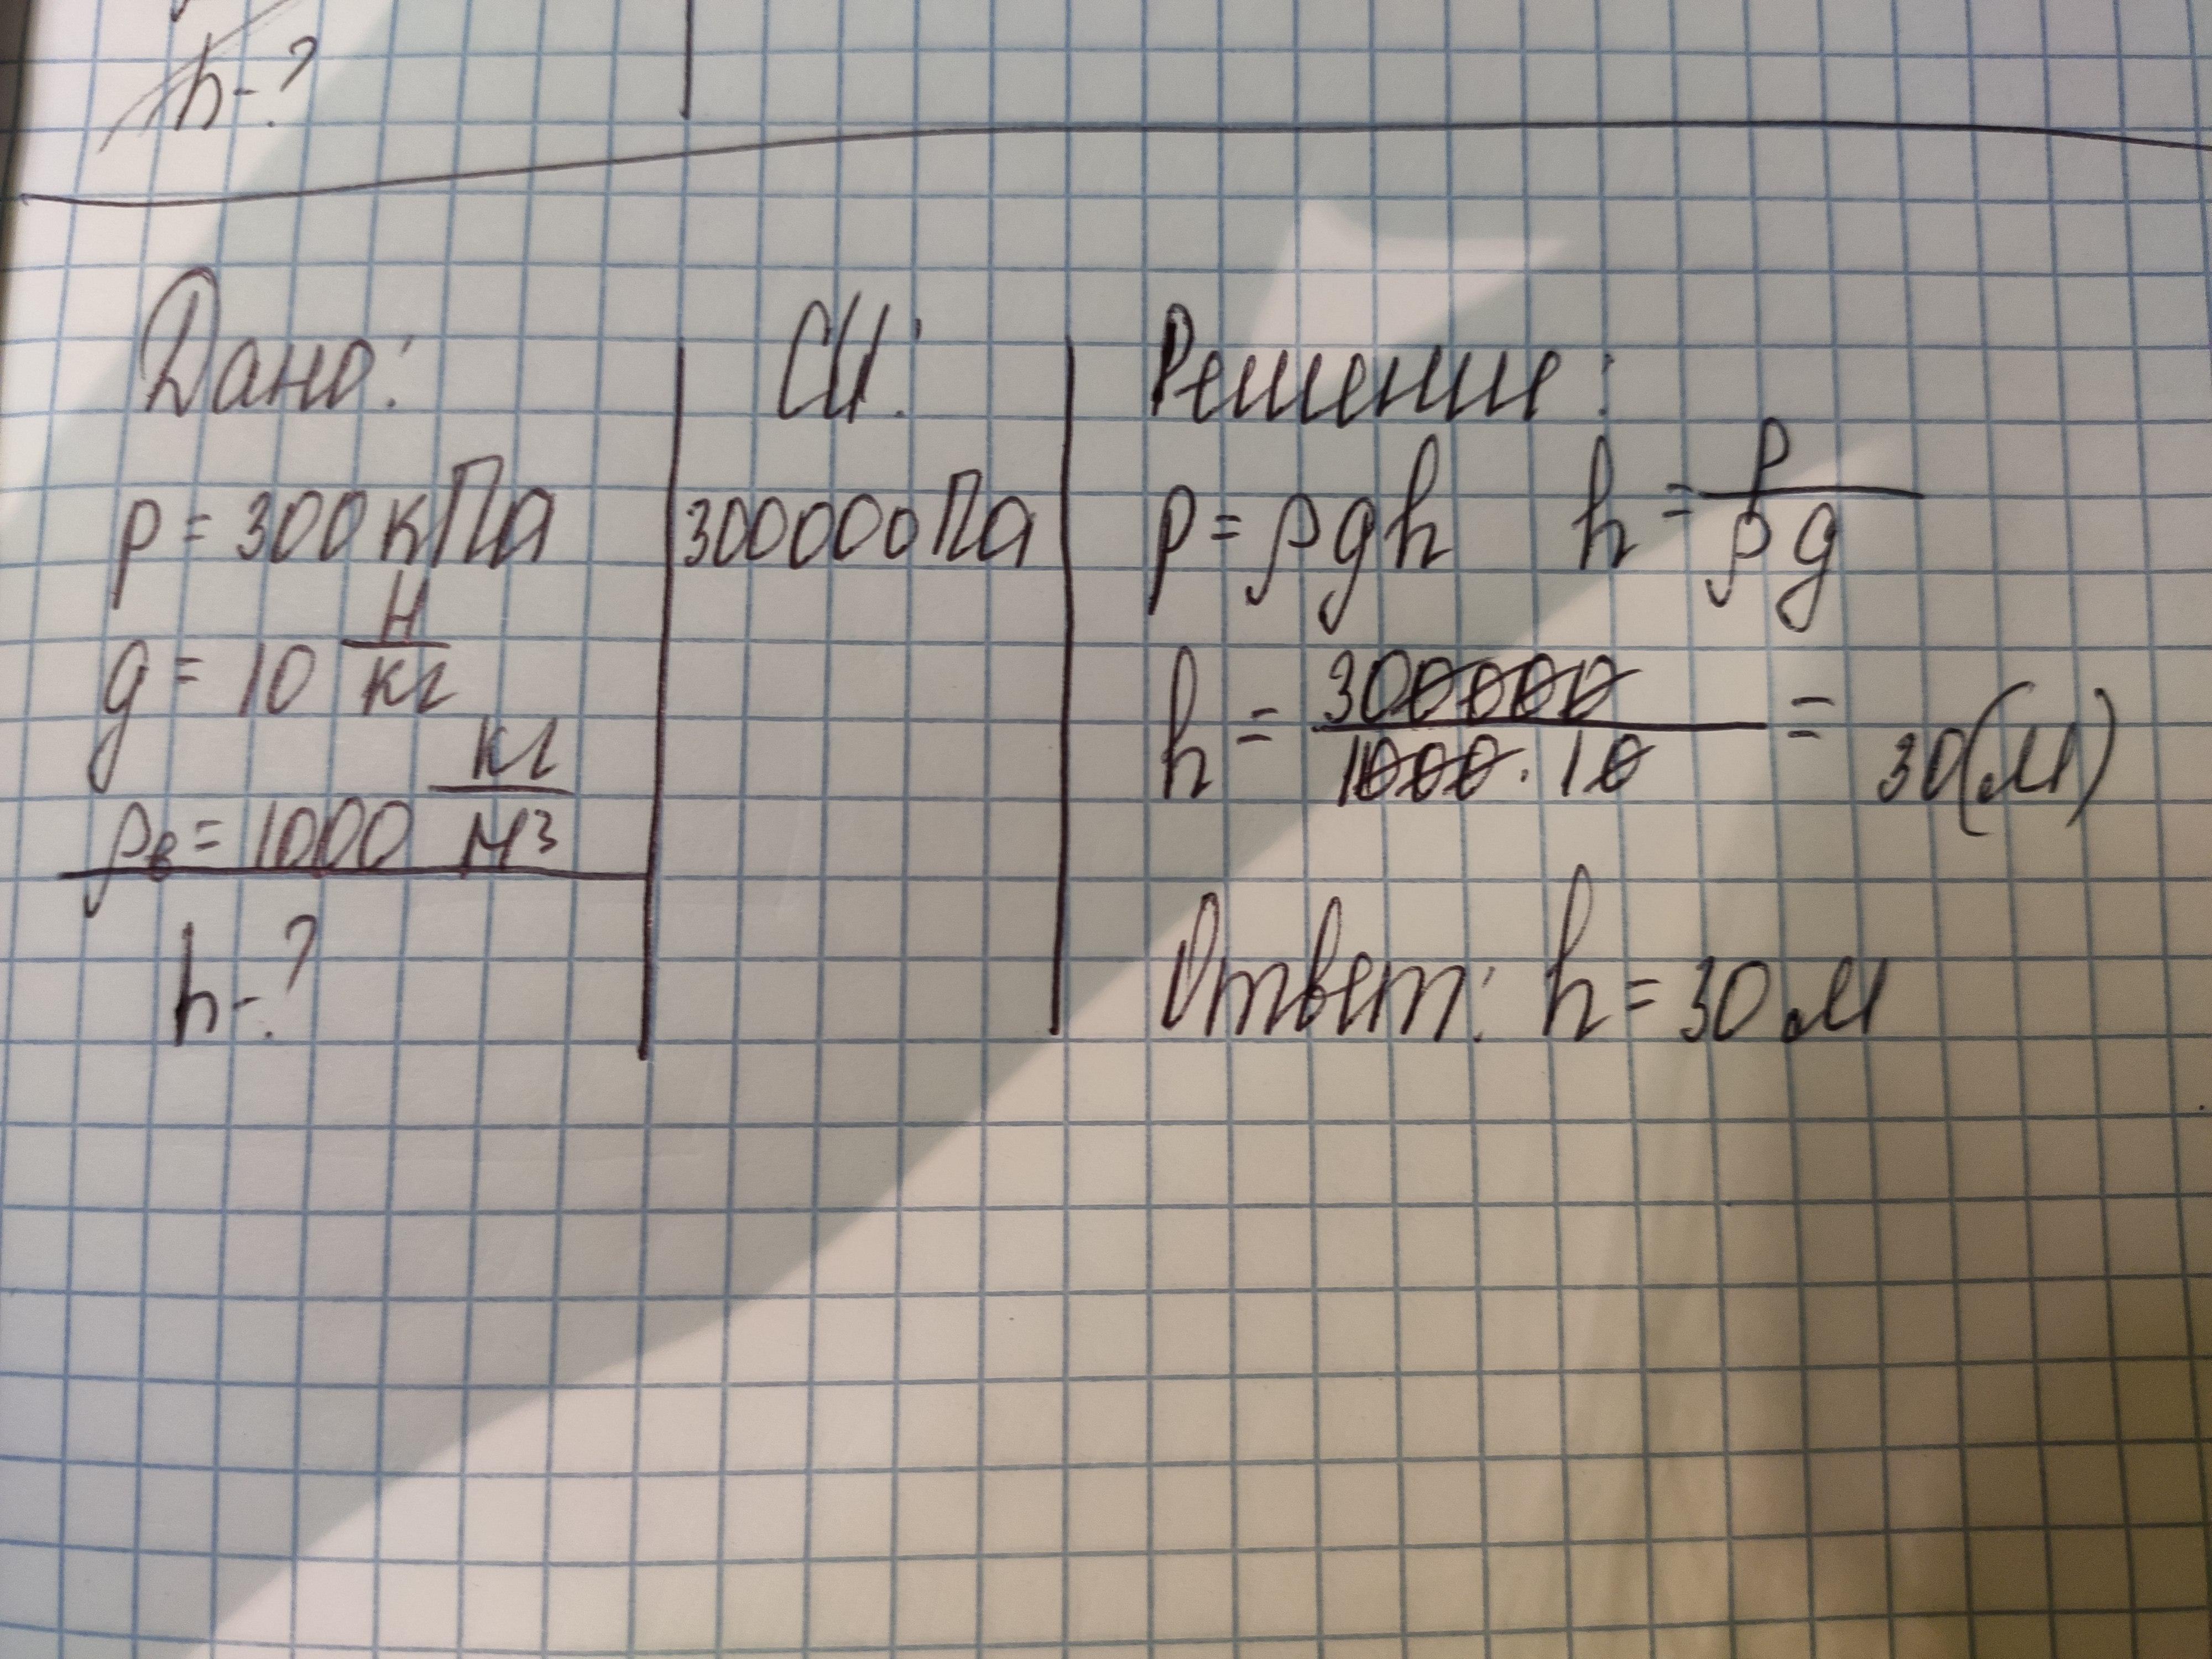 h-?
Дано:
p = 300 кПа
g = 10 Н/кг
ρв = 1000 кг/м³
h-?
СИ:
300000 Па
Решение:
p = ρgh h = p/ρg
h = 300000/1000·10 = 30(м)
Ответ: h = 30 м